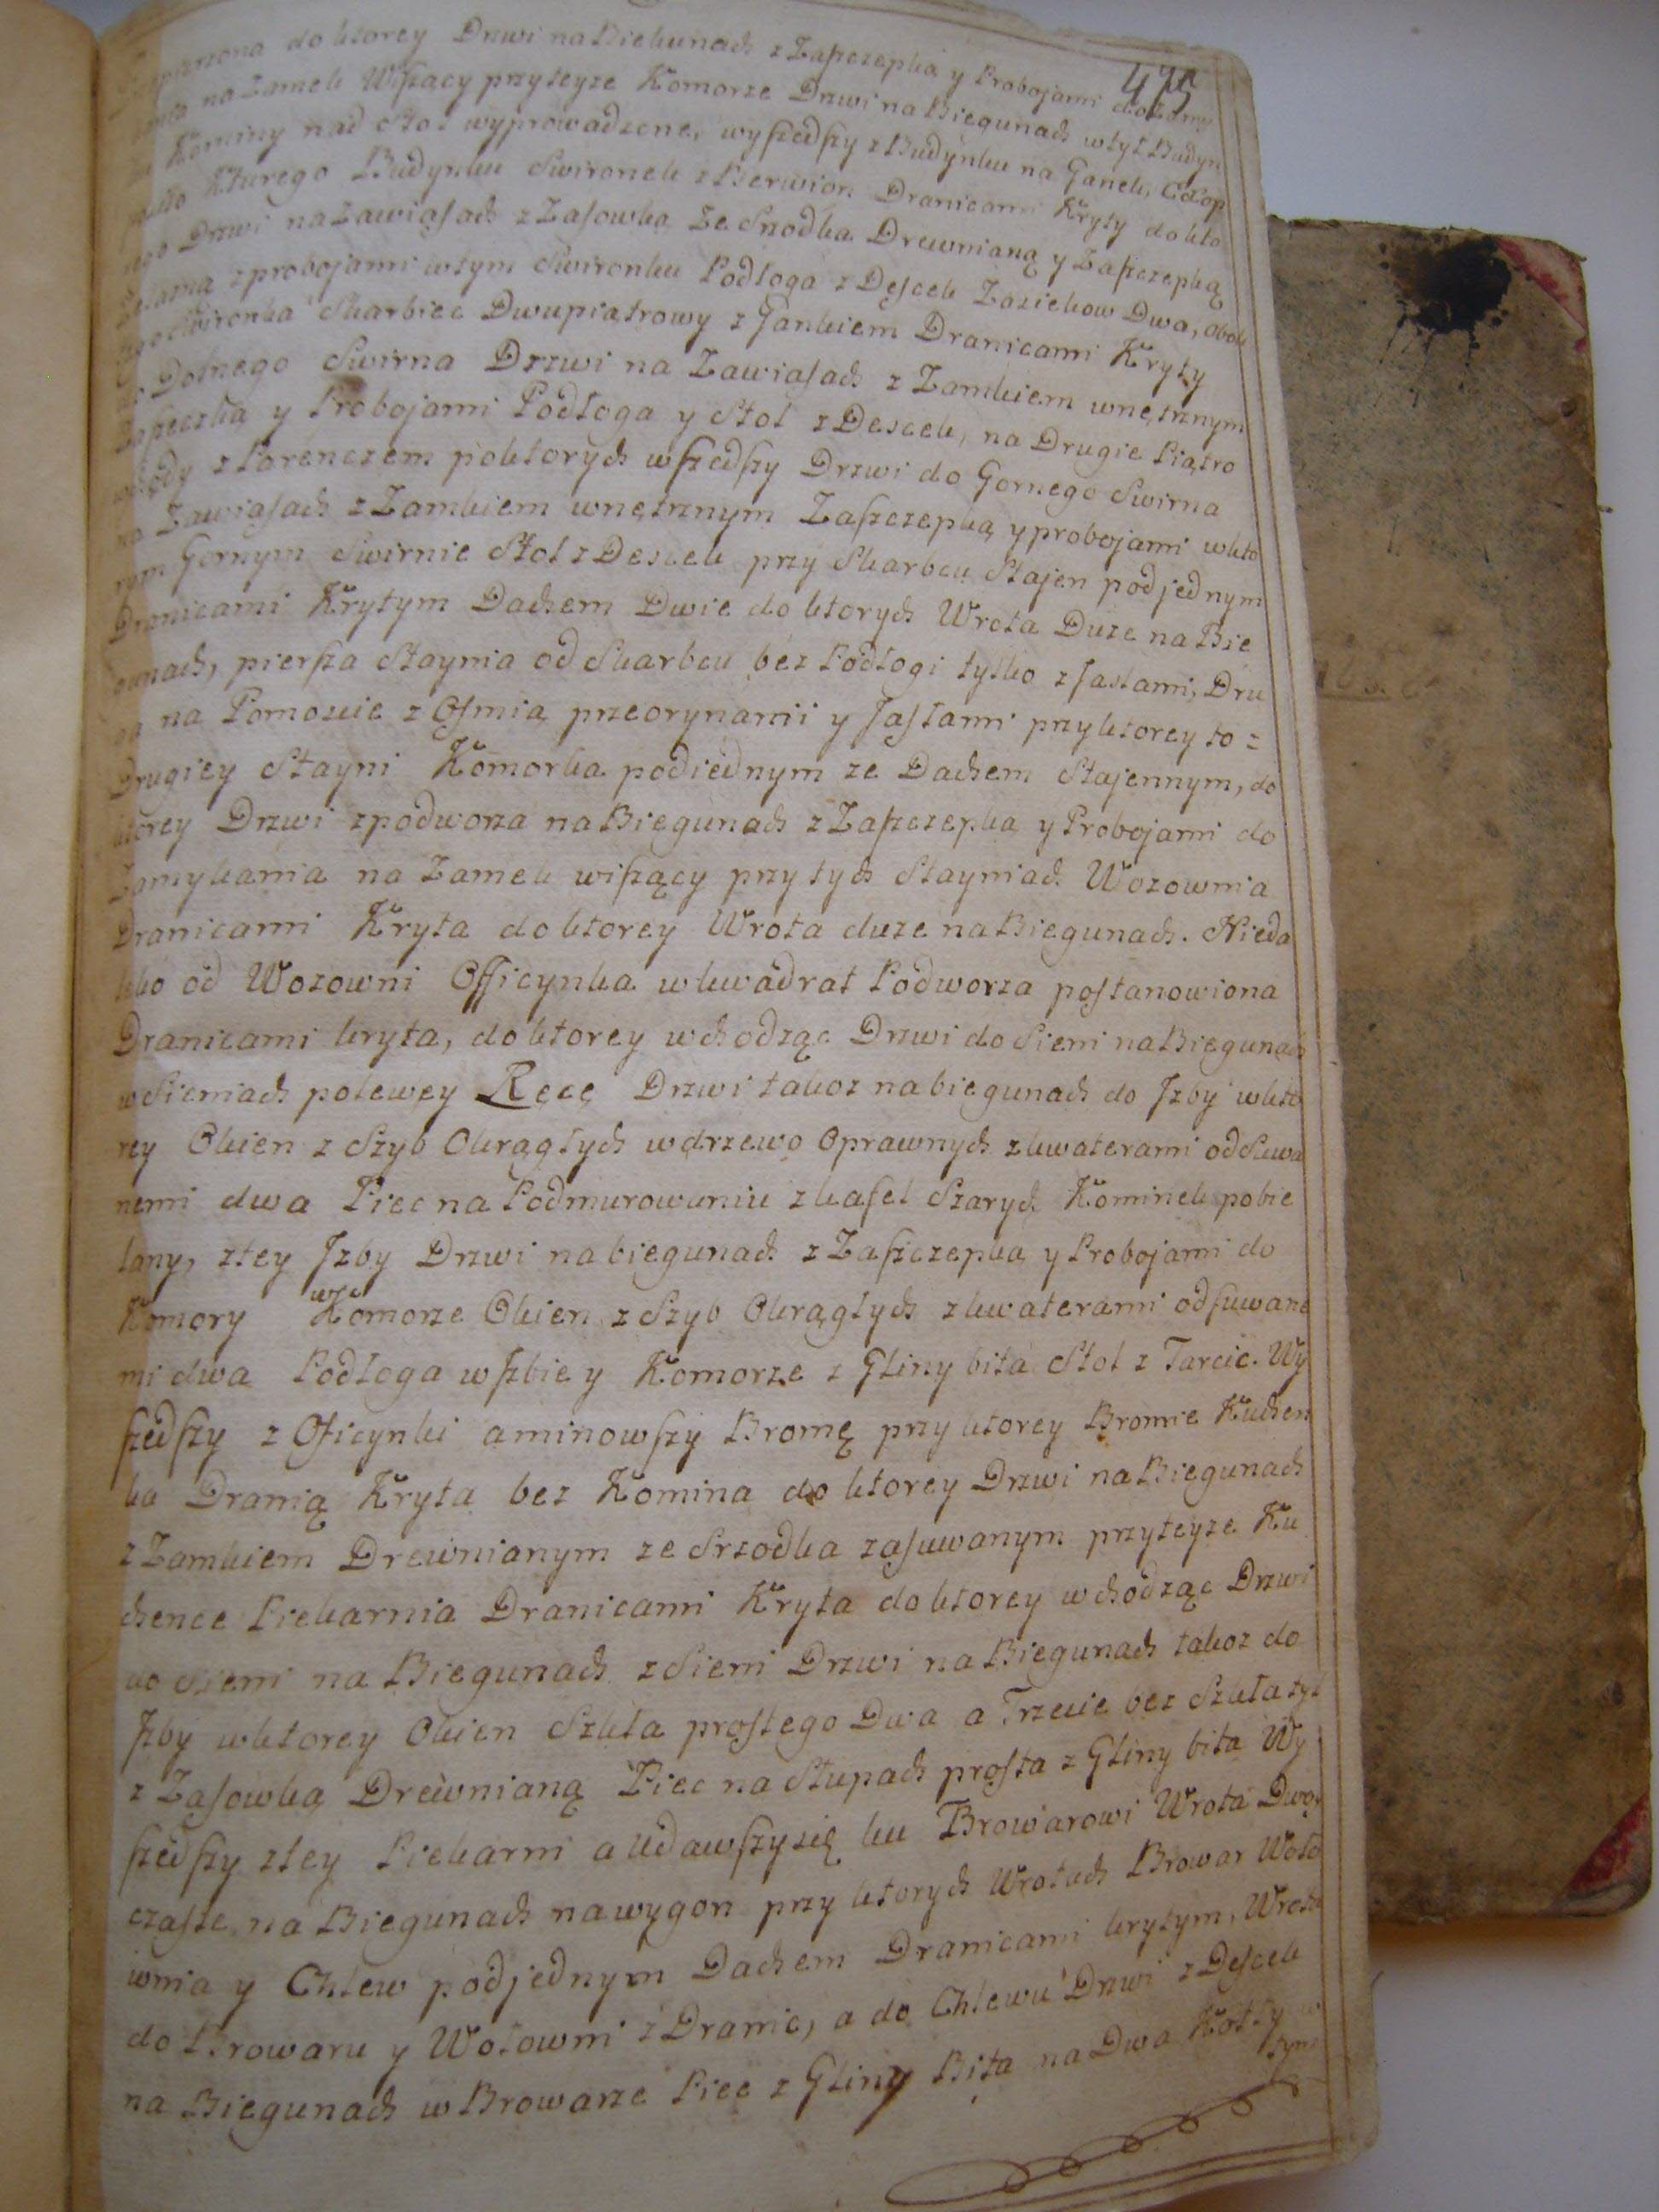 475
do ktorey Drzwi na Biekunach z Zaszczepką y Probojami do Zamy
na Zamek Wiszący przyteyże Komorze Drzwi na Biegunach wtył Budyn
Kominy nad Stol wyprowadzone, wyszedszy z Budynku na Ganek,
Kturego Budynku Swironek z Berwion Dranicami Kryty do kto
rego Drzwi na Zawiasach z Zasowką ze Srzodka Drewnianą y Zaszczepką
Zelazną z probojami wtym Swironku Podłoga z Desçek Zasiekow Dwa, obok
tego Swironka Skarbiec Dwupiątrowy z Gankiem Dranicami Kryty
Dolnego Swirna Drzwi na Zawiasach z Zamkiem wnętrznym
Zaszeczką y Probojami Podłoga y Stol z Desçek, na Drugie Piątro
wschody z Porenczem poktorych wszedszy Drzwi do Gornego Swirna
na Zawiasach z Zamkiem wnętrznym Zaszczepką y probojami wkto
rym Gornym Swirnie Stol z Desçek przy Skarbcu Stajen pod jednym
Dranicami Krytym Dachem Dwie do ktorych Wrota Duze na Bie
gunach, piersza Staynia od Skarbcu bez Podłogi tylko z Jasłami, Dru
ga na Pomoscie z Osmią przeorynami y Jasłami przyktorey to=
Drugiey Stayni Komorka podiednym ze Dachem Stajennym, do
ktorey Drzwi z podworza na Biegunach z Zaszczepką y Probojami do
Zamykania na Zamek wiszący przy tych Stayniach Wozownia
Dranicami Kryta do ktorey Wrota duze na Biegunach. Nieda
leko od Wozowni Officynka wkwadrat Podworza postanowiona
Dranicami kryta, do ktorey wchodząc Drzwi do Sieni na Biegunach
w Sieniach polewey Ręcę Drzwi takoz na biegunach do Jzby wkto
rey Okien z Szyb Okrągłych wdrzewo Oprawnych z kwaterami odsuwa
nemi dwa Piec na Podmurowaniu z kafel Szarych Kominek pobie
lany, ztey Jzby Drzwi na biegunach z Zaszczepką y Probojami do
Komory w Komorze Okien z Szyb Okrągłych z kwaterami odsuwane
mi dwa Podłoga w Jzbie y Komorze z Gliny bita Stol z Tarcic. Wy
szedszy z Oficynki aminowszy Bromę przyktorey Bromie Kuchen
ka Dranią Kryta bez Komina do ktorey Drzwi na Biegunach
z Zamkiem Drewnianym ze Srzodka zasuwanym przyteyże Ku
chence Piekarnia Dranicami Kryta do ktorey wchodząc Drzwi
do Sieni na Biegunach z Sieni Drzwi na Biegunach takoz do
Jzby wktorey Okien Szkła prostego Dwa a Trzecie bez Szkła tyl
z Zasowką Drewnianą Piec na Słupach prosta z Gliny bita Wy
szedszy ztey Piekarni a Udawszy się ku Browarowi Wrota Dwo
czaste na Biegunach na wygon przy ktorych Wrotach Browar Woło
wnia y Chlew podjednym Dachem Dranicami krytym, Wrota
do Browaru y Wołowni z Dranic, a do Chlewu Drzwi z Desçek
na Biegunach w Browarze Piec z Gliny Bita na Dwa Kotły w
tym